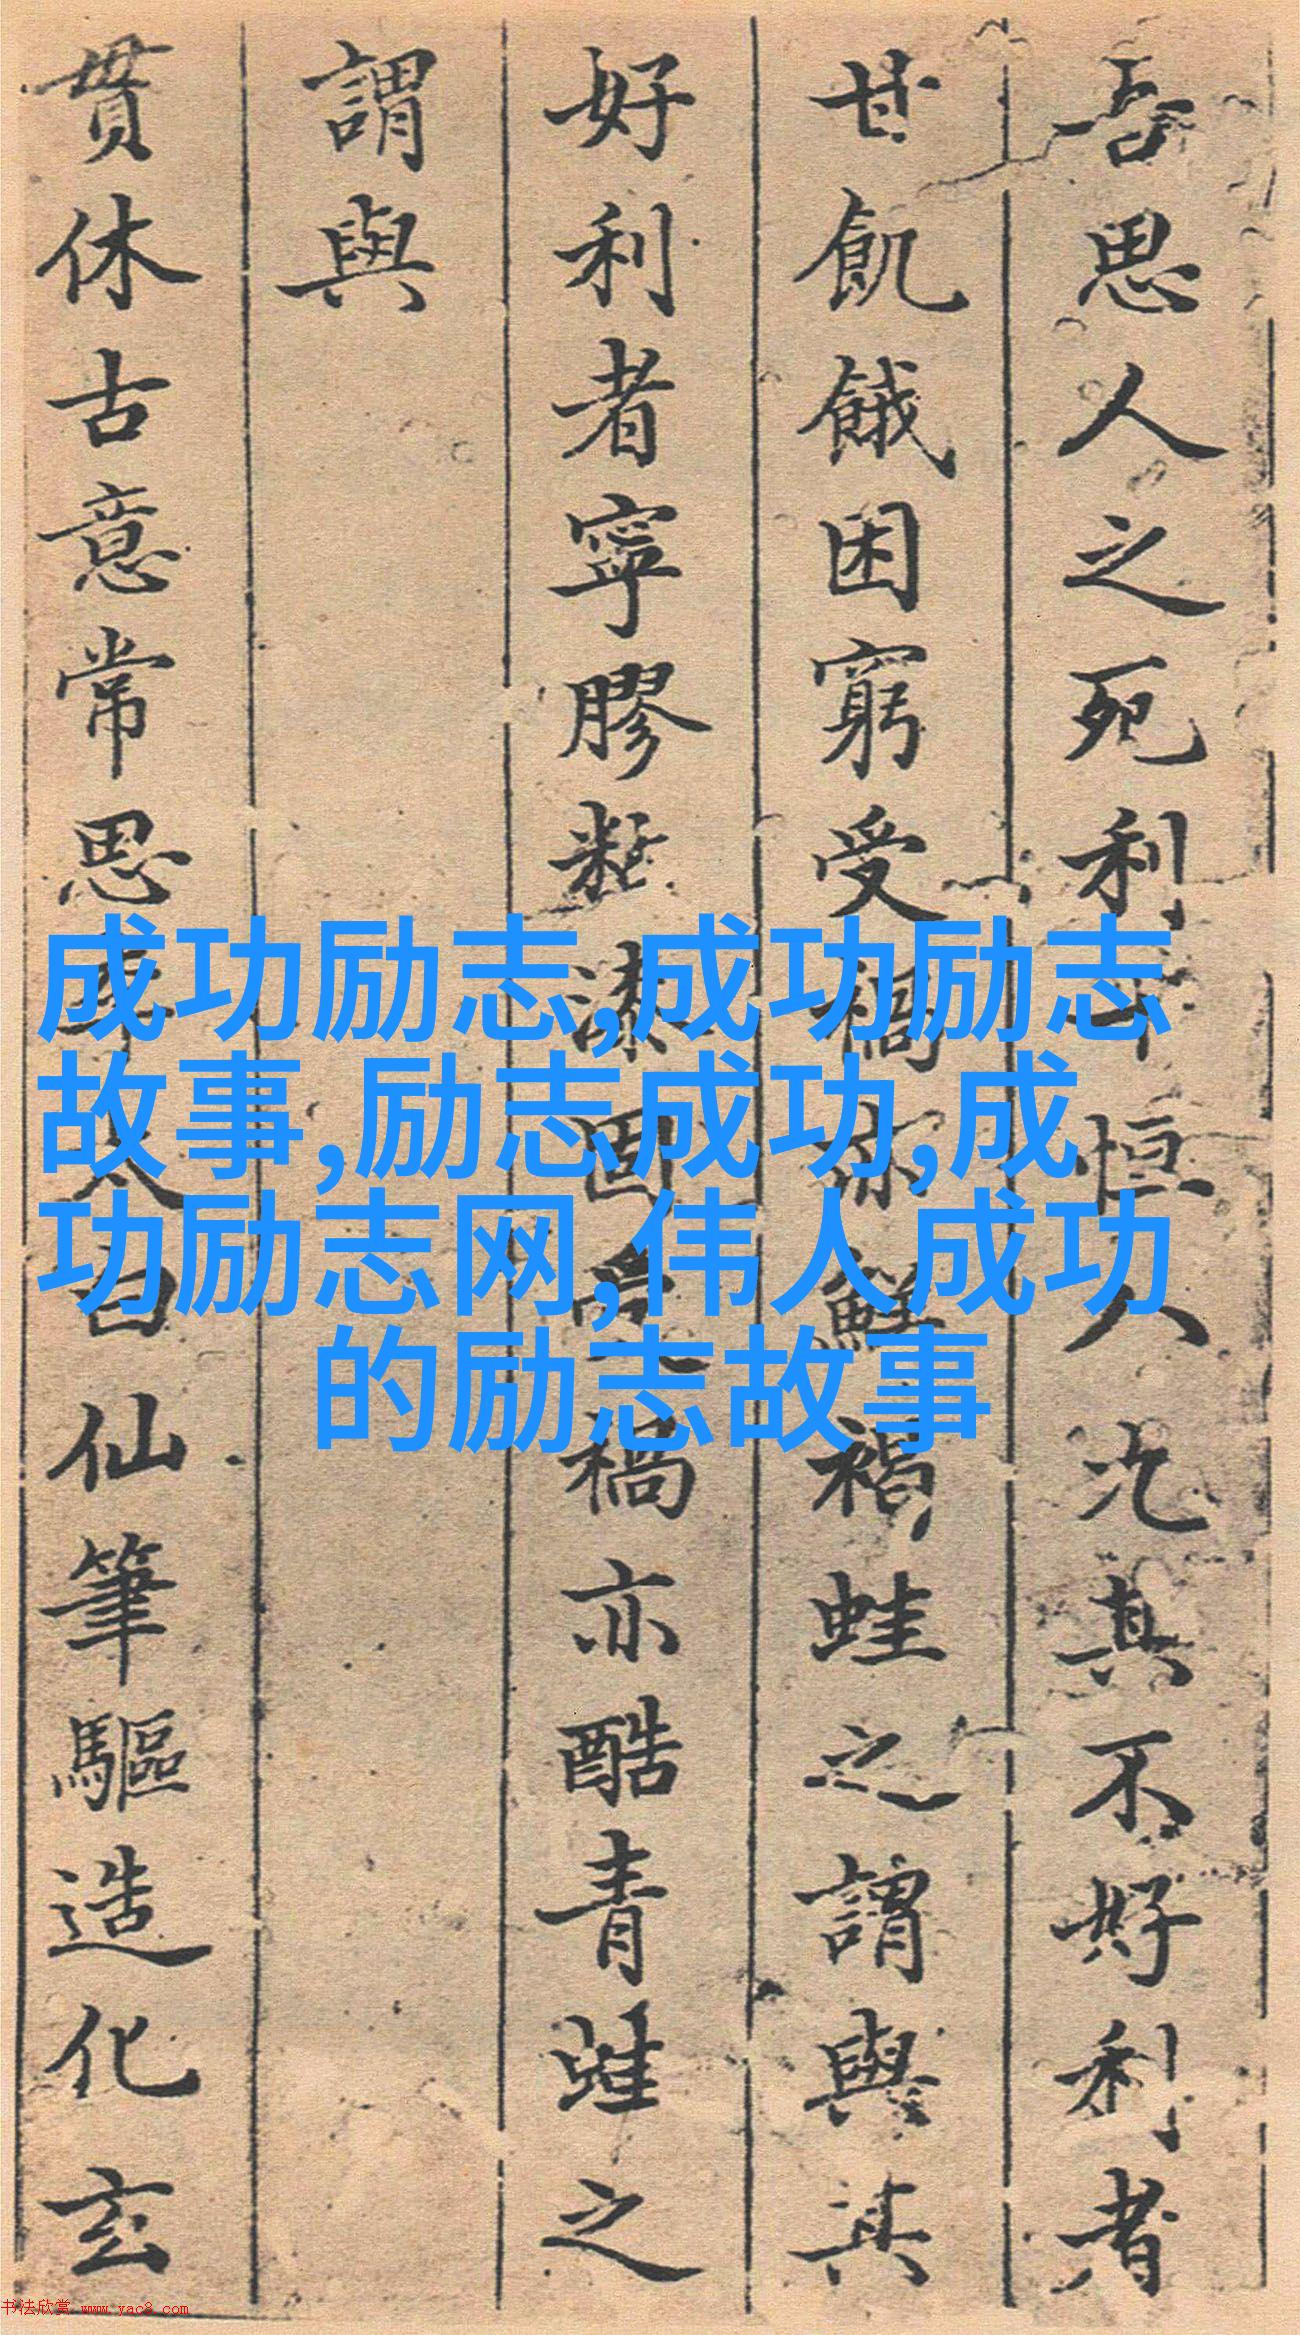 吾思人之死利十恒八九其不好利者
甘飢餓困窮受禍亦鮮褐蛙之謂與其
好利者寧膠黏漆固受禍亦酷青蛙之
謂與
貫休古意常思李太白仙筆驅造化玄
成功励志,成功励志
故事,励志成功,成
功励志网,伟人成功
的励志故事
书法欣赏 www.yac8.com